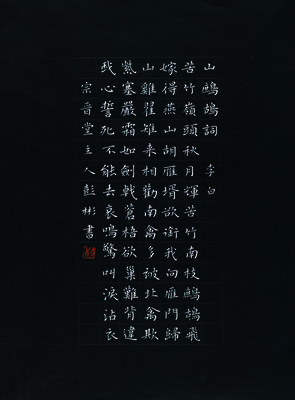 山鷓鴣詞 李白
苦竹嶺頭秋月輝苦竹南枝鷓鴣飛
嫁得燕山胡雁壻欲銜我向雁門歸
山雞翟雉來相勸南禽多被北禽欺
紫塞嚴霜如劍戟蒼梧欲巢難背違
我心誓死不能去哀鳴驚叫淚沾衣
宗晉堂主人彭彬書